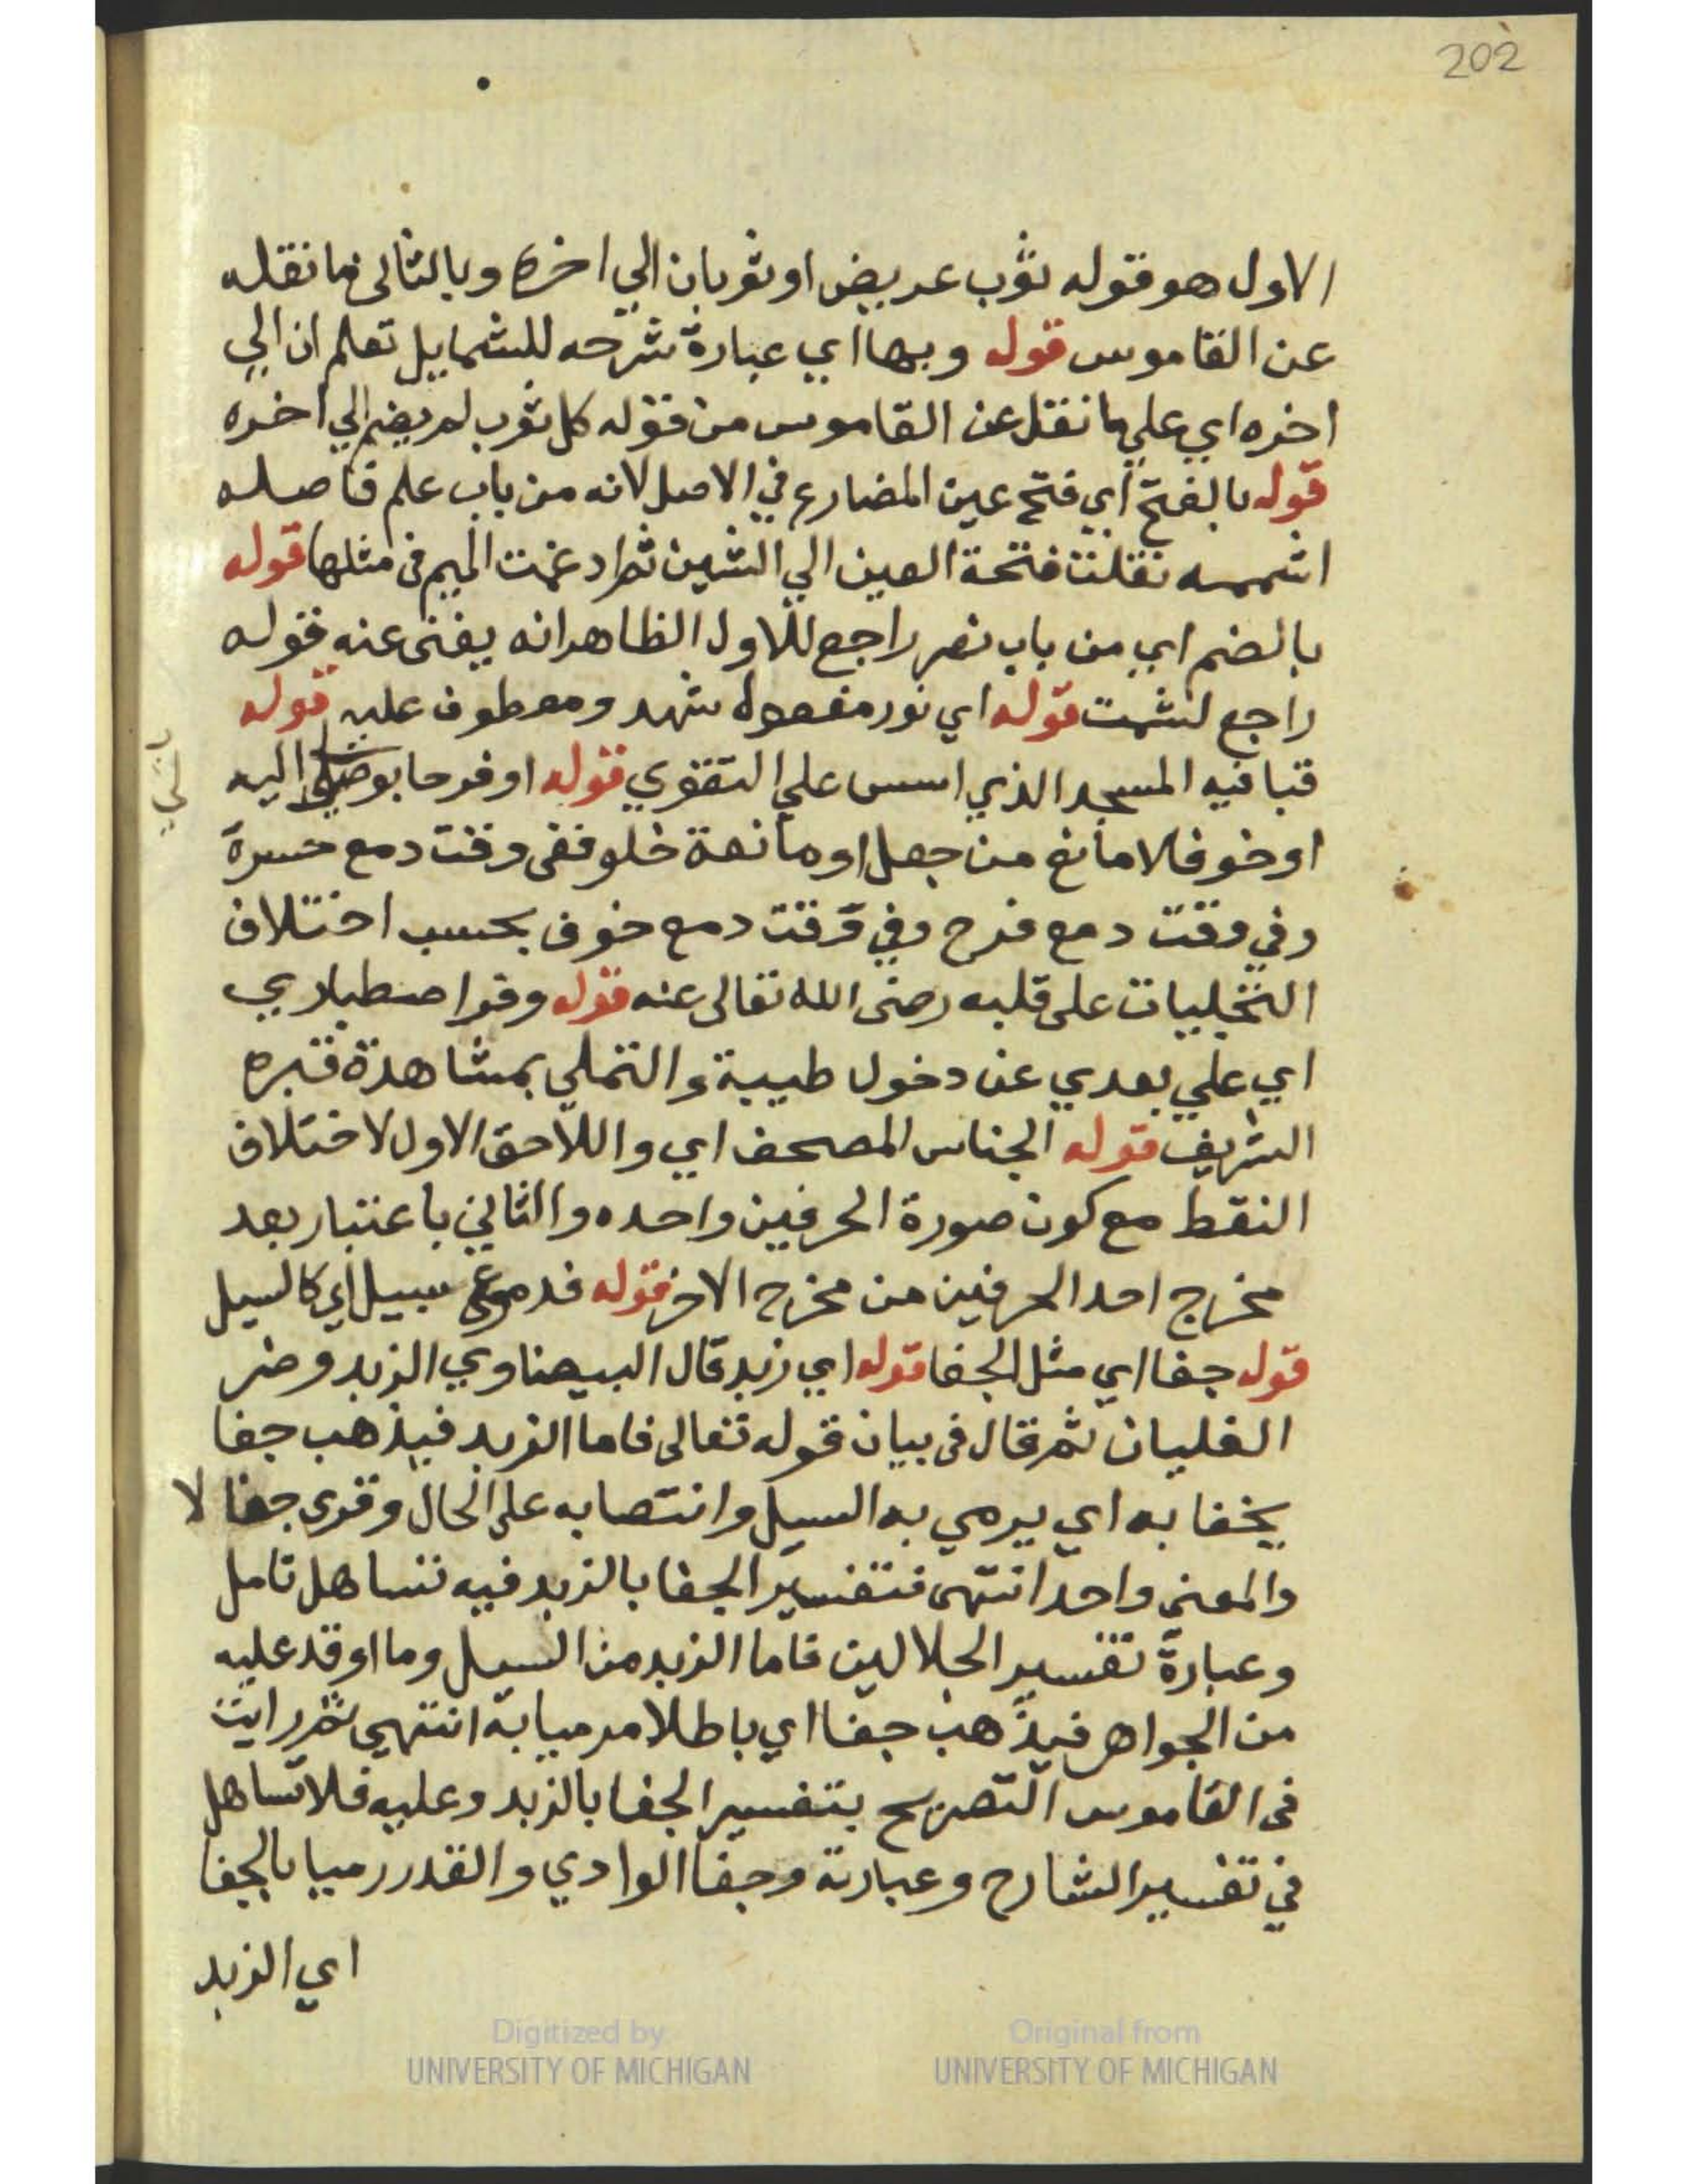 202
الاول هو قوله ثوب عريض او ثوبان الي اخره وبالثاني ما نقله
عن القاموس قوله وبها اي عبارة شرحه للشمايل تعلم ان الي
اخره اي علي ما نقل عن القاموس من قوله كل ثوب لم يضم الي اخره
قوله بالفتح اي فتح عين المضارع في الاصل لانه من باب علم فاصله
اشممه نقلت فتحة العين الي الشين ثم ادغمت الميم في مثلها قوله
بالضم اي من باب نصر راجع للاول الظاهر انه يغني عنه قوله
راجع لشمت قوله اي نور مفعول شهد ومعطوف عليه قوله
قبا فيه المسجد الذي اسس علي التقوي قوله او فرحا بوصلي اليه
او خوفا لا مانع من جعل او مانعة خلو ففي وقت دمع حسرة
وفي وقت دمع فرح وفي وقت دمع خوف بحسب اختلاف
التجليات على قلبه رضى الله تعالى عنه قوله وقرا صطباري
اي علي بعدي عن دخول طيبة والتملي بمشاهدة قبره
الشريف قوله الجناس المصحف اي واللاحق الاول لاختلاف
النقط مع كون صورة الحرفين واحده والثاني باعتبار بعد
مخرج احد الحرفين من مخرج الاخر قوله فدموعي سيل اي كالسيل
قوله جفا اي مثل الجفا قوله اي زبد قال البيضاوي الزبد وضر
الغليان ثم قال في بيان قوله تعالى فاما الزبد فيذهب جفا
يجفا به اي يرمي به السيل وانتصابه على الحال وقرى جفالا
والمعني واحد انتهى فتفسير الجفا بالزبد فيه تساهل تامل
وعبارة تفسير الجلالين فاما الزبد من السيل وما اوقد عليه
من الجواهر فيذهب جفا اي باطلا مرميا به انتهي ثم رايت
في القاموس التصريح بتفسير الجفا بالزبد وعليه فلا تساهل
في تفسير الشارح وعبارته وجفا الوادي والقدر رميا بالجفا
اي الزبد
Digitized by
UNIVERSITY OF MICHIGAN
Original from
UNIVERSITY OF MICHIGAN